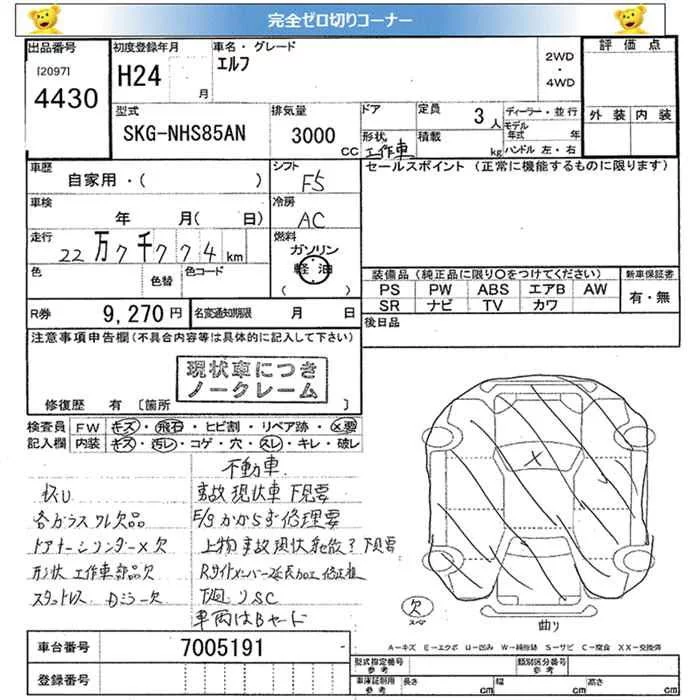 完全ゼロ切りコーナー
出品番号
[2097]
4430
初度登録年月
H24
月
車名・グレード
エルフ
2WD
・
4WD
評価点
外装 内装
型式
SKG-NHS85AN
排気量
3000
CC
ドア
形状
工作車
定員 3 人
積載
kg
ディーラー・並行
モデル年式 年
ハンドル 左・右
車歴
自家用・( )
シフト
F5
セールスポイント (正常に機能するものに限ります)
車検
年 月( 日)
冷房
AC
走行
22万7千774km
燃料
ガソリン
軽油
( )
色
色替
色コード
装備品 (純正品に限り○をつけてください)
新車保証書
PS PW ABS エアB AW
SR ナビ TV カワ
有・無
R券 9,270円
名変通知期限 月 日
後日品
注意事項申告欄 (不具合内容等は具体的に記入して下さい)
現状車につき
ノークレーム
修復歴 有 [箇所 ]
検査員
記入欄
FW キズ・飛石・ヒビ割・リペア跡・×要
内装 キズ・汚レ・コゲ・穴・スレ・キレ・破レ
不動車
事故現状車 下見要
各ガラスワレ欠品
修理要
ドアナーシリンダー×欠
上物事故現状 下見要
形状 工作車部品欠
Rサイドメンバー延長加工 修正有
スタットレス Dミラー欠
下廻りSC
車両はBヤード
欠
スペア
曲り
A-キズ E-エクボ U-凹み W-補修跡 S-サビ C-腐食 XX-交換済
車台番号 7005191
登録番号
型式指定番号
参考
類別区分番号
参考
車庫証明用
参考
長さ cm
幅 cm
高さ cm